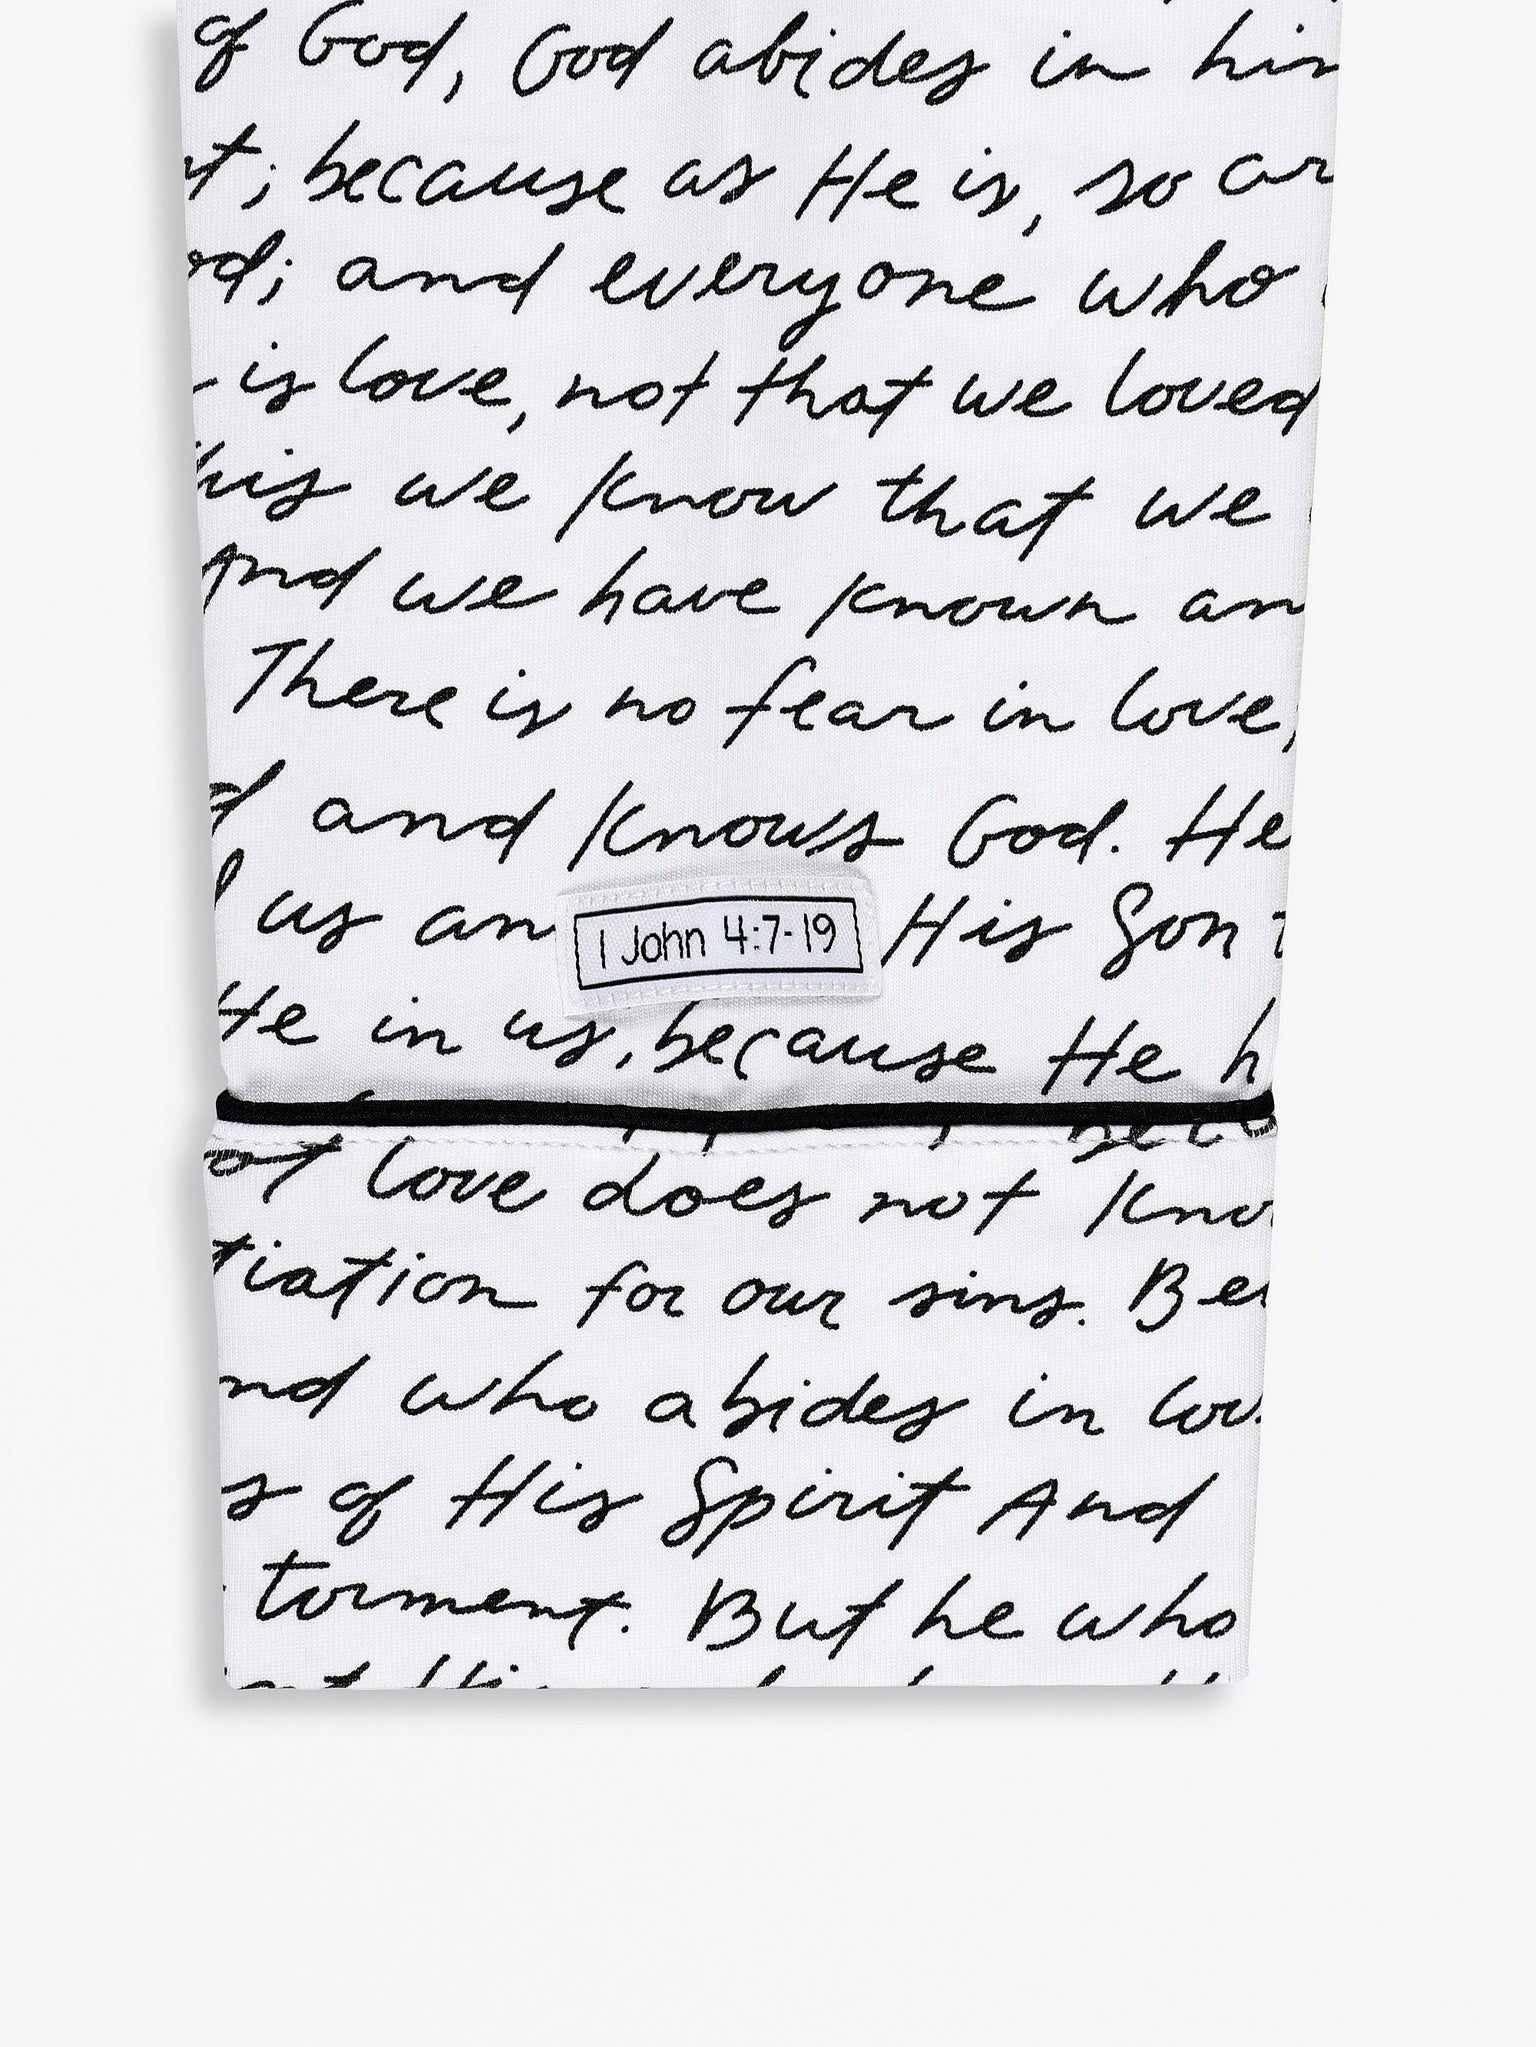 of God, God abides in him
; because as He is, so ar
; and everyone who
is love, not that we loved
his we know that we
And we have known an
There is no fear in love,
and knows God. He
us an His Son
1 John 4:7-19
He in us, because He h
love does not kno
tiation for our sins. Be
nd who abides in lov
s of His Spirit And
torment. But he who